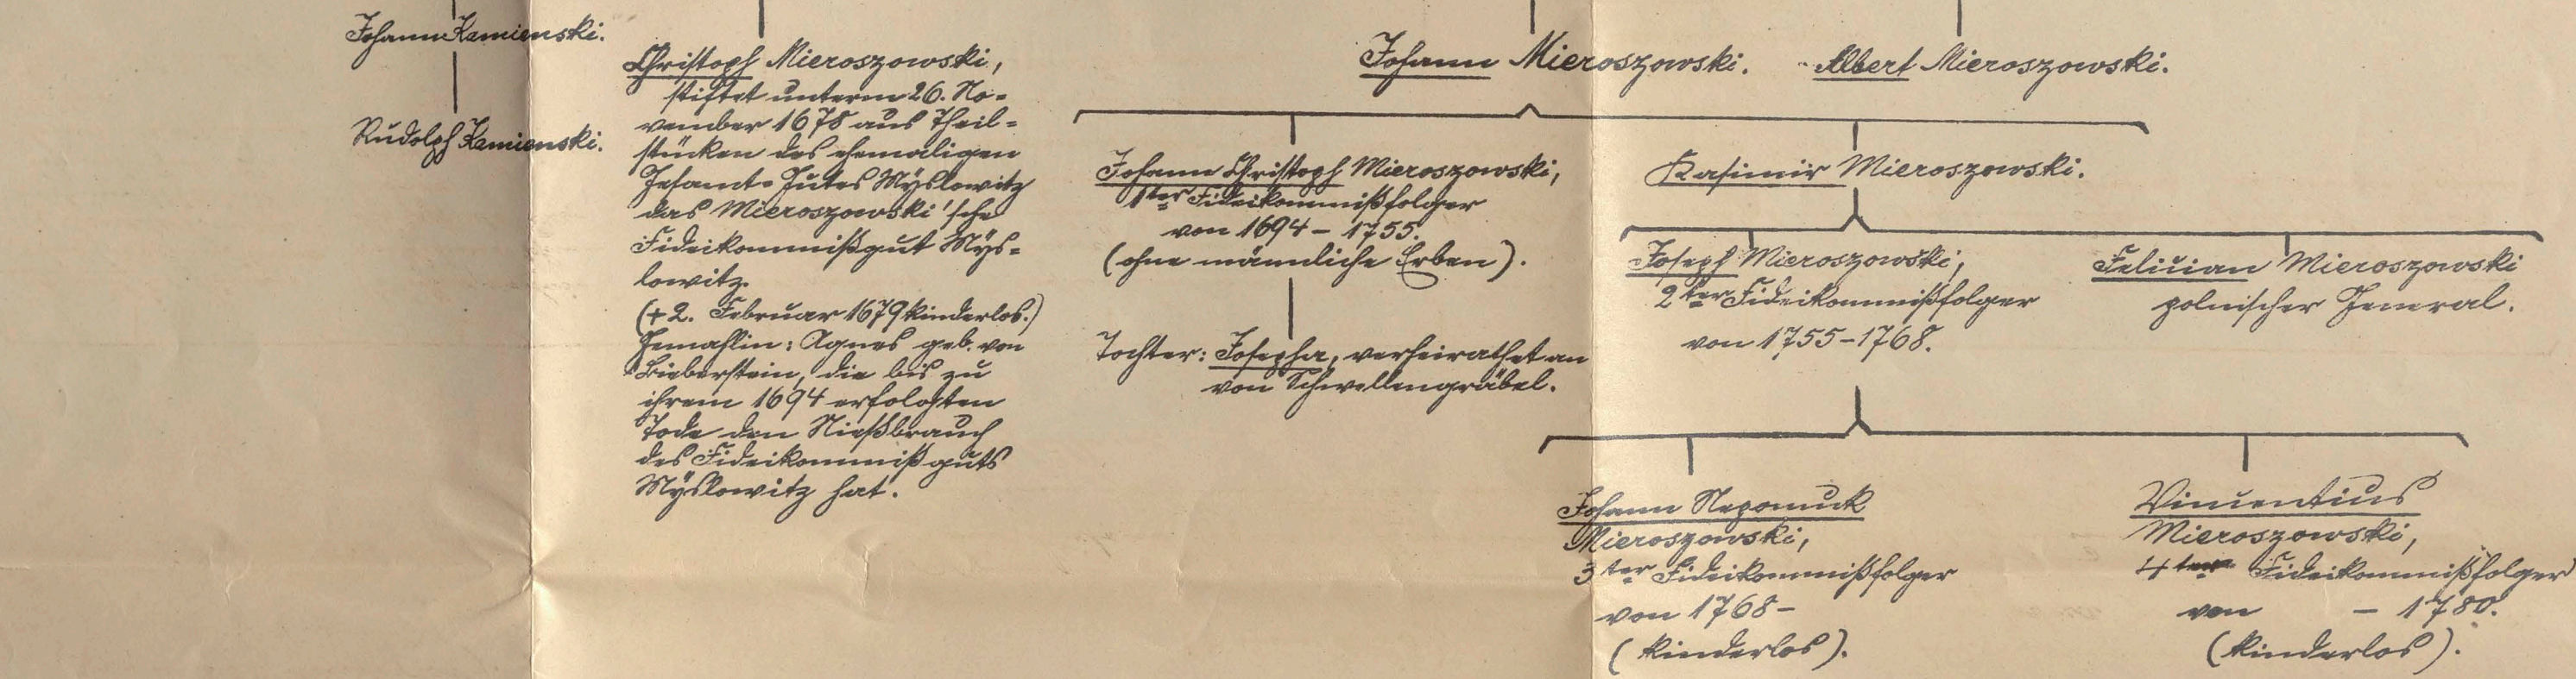 Johann Kamienski.
Rudolph Kamienski.
Christoph Mieroszowski,
stiftet unterm 26. No=
vember 1678 aus Theil=
stücken des ehemaligen
Gesamt=Gutes Myslowitz
das Mieroszowski'sche
Fideikommißgut Mys=
lowitz.
(+ 2. Februar 1679 kinderlos.)
Gemahlin: Agnes geb. von
Bieberstein, die bis zu
ihrem 1694 erfolgten
Tode den Nießbrauch
des Fideikommißguts
Myslowitz hat.
Johann Mieroszowski.
Albert Mieroszowski.
Johann Christoph Mieroszowski,
1ter Fideikommißfolger
von 1694 – 1755.
(ohne männliche Erben).
Tochter: Josepha, verheirathet an
von Schwellengräbel.
Kasimir Mieroszowski.
Joseph Mieroszowski,
2ter Fideikommißfolger
von 1755 – 1768.
Felician Mieroszowski
polnischer General.
Johann Nepomuk
Mieroszowski,
3ter Fideikommißfolger
von 1768 –
(kinderlos).
Vincentius
Mieroszowski,
4ter Fideikommißfolger
von – 1780.
(kinderlos).